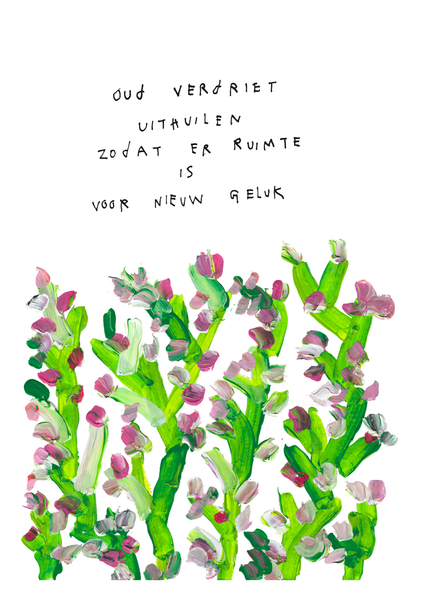 OUd VERdRIET
UITHUILEN
ZOdAT ER RUIMTE
IS
VOOR NIEUW GELUK